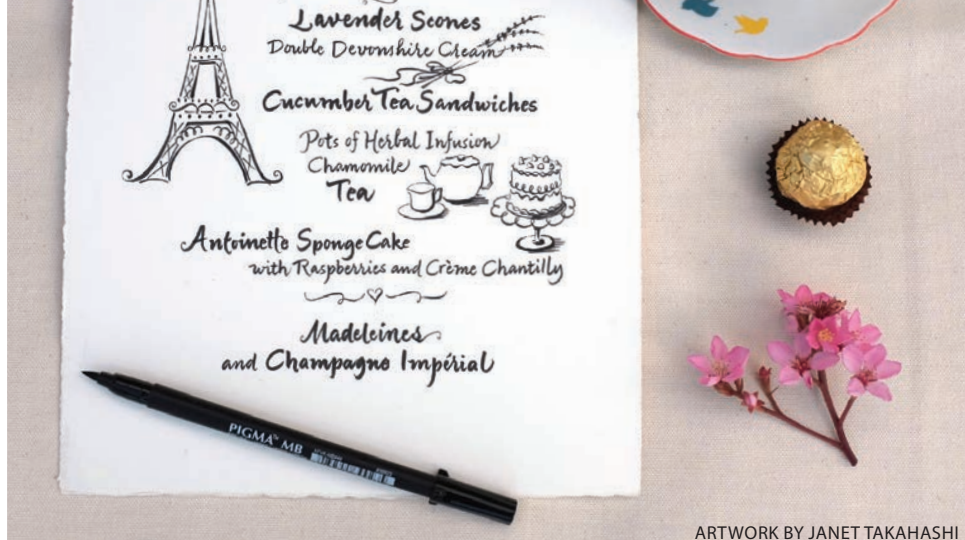 Lavender Scones
Double Devonshire Cream
Cucumber Tea Sandwiches
Pots of Herbal Infusion
Chamomile
Tea
Antoinette Sponge Cake
with Raspberries and Crème Chantilly
Madeleines
and Champagne Impérial
PIGMA™ MB
ARTWORK BY JANET TAKAHASHI